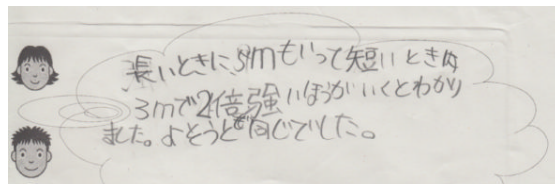 長いときに5mもいって短いときは
3mで2倍強いほうがいくとわかり
ました。よそうと同じでした。